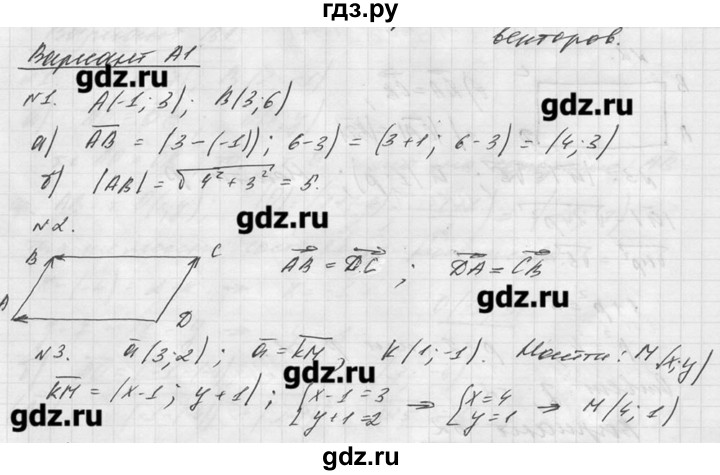 гдз.ру
векторов.
Вариант А1
gdz.ru
№1. A(-1; 3); B(3; 6)
gdz.ru
а) AB = (3-(-1)); 6-3) = (3+1; 6-3) = (4; 3)
б) |AB| = √4²+3² = 5.
gdz.ru
№2.
B C
AB = DC; DA = CB
gdz.ru
A D
№3. a(3; 2); a = KM, K(1; -1). Найти: M(x; y)
gdz.ru
KM = (x-1; y+1); {x-1=3 y+1=2 → {x=4 y=1 → M(4; 1)
gdz.ru
gdz.ru